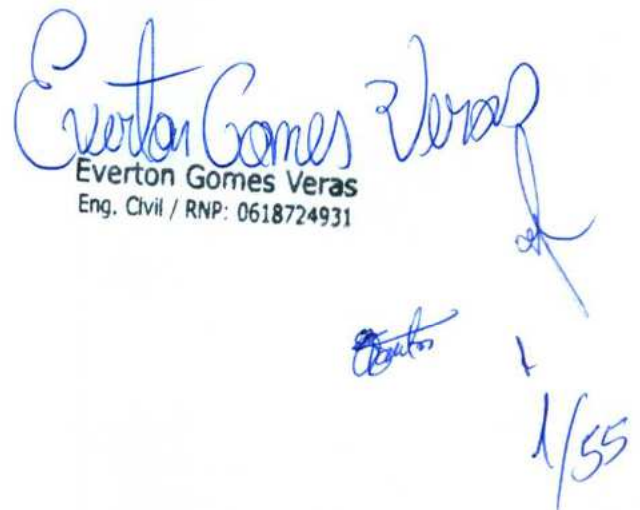 Everton Gomes Veras
Everton Gomes Veras
Eng. Civil / RNP: 0618724931
1/55